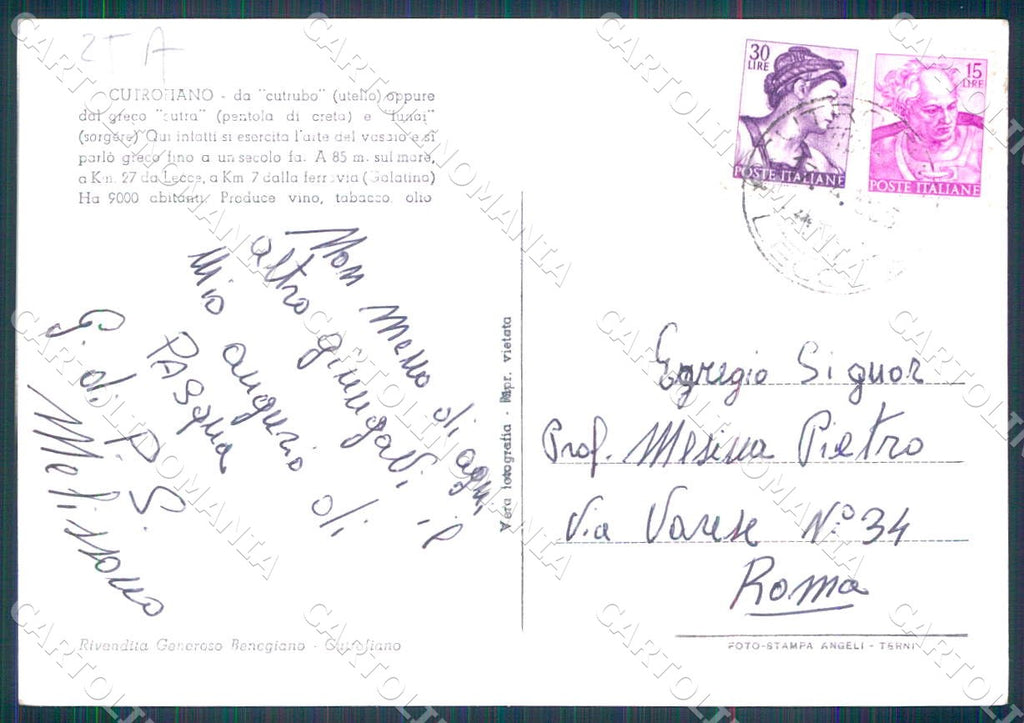 2IA
CUTROFIANO - da "cutrubo" (utello) oppure
dal greco "cutra" (pentola di creta) e "funai"
(sorgere) Qui infatti si esercita l'arte del vasaio e si
parlò greco fino a un secolo fa. A 85 m. sul mare,
a Km. 27 da Lecce, a Km 7 dalla ferrovia (Galatina)
Ha 9000 abitanti. Produce vino, tabacco, olio
30
LIRE
POSTE ITALIANE
15
LIRE
POSTE ITALIANE
Non meno di ogni
altro giunga Vi, il
Mio augurio di
PASqua
G. di P S.
Melissano
Vera fotografia - Ripr. vietata
Egregio Signor
Prof. Mesina Pietro
Via Varese N° 34
Roma
Rivendita Generoso Benegiano - Cutrofiano
FOTO-STAMPA ANGELI - TERNI
CARTOLINOMANIA